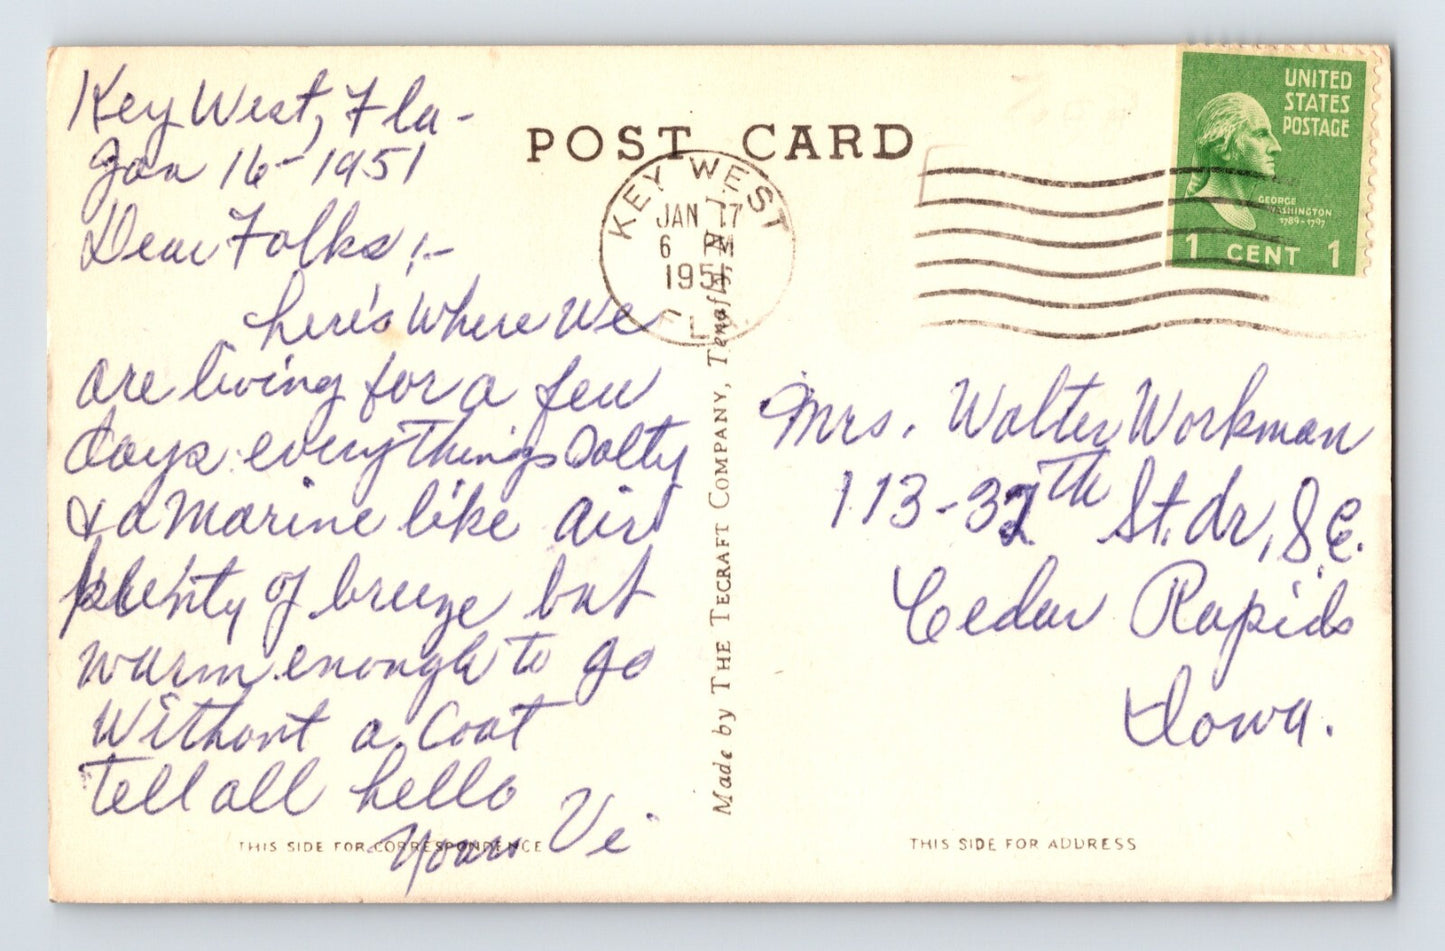 Key West, Fla-
Jan 16-1951
Dear Folks!-
here's Where We
are living for a few
days everythings Salty
& a Marine like air
plenty of breeze but
warm enough to go
Without a Coat
tell all hello
Yours Vi
THIS SIDE FOR CORRESPONDENCE
POST CARD
KEY WEST
JAN 17
6 PM
1951
FLA.
Made by THE TECRAFT COMPANY, Tenafly,
UNITED
STATES
POSTAGE
GEORGE
WASHINGTON
1789-1797
1 CENT 1
Mrs. Walter Workman
113-32th St. dr, S E.
Cedar Rapids
Iowa.
THIS SIDE FOR ADDRESS